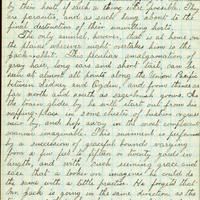 by their host, if such a thing were possible. They
are parasites, and as such hang about to the
final destruction of their unwilling host.
The only animal, however, that is at home on
the plains wherever night overtakes him is the
Jack-rabbit. This peculiar amalgamation of
gray hair, long ears and short tail, can be
seen at almost all points along the Union Pacific
between Sidney and Ogden, and some times as
far north and south as sage-brush grows. As
the train glides by he will start out from his
napping-place in some cluster of bushes or grass
near by, and hop away in the most confident
manner imaginable. This movement is performed
by a succession of graceful bounds varying
from a few feet to fifteen or twenty yards in
length, and with such seeming grace and
ease that a looker-on imagines he could do
the same with a little practice. He forgets that
Mr. Jack is going in the same direction as the